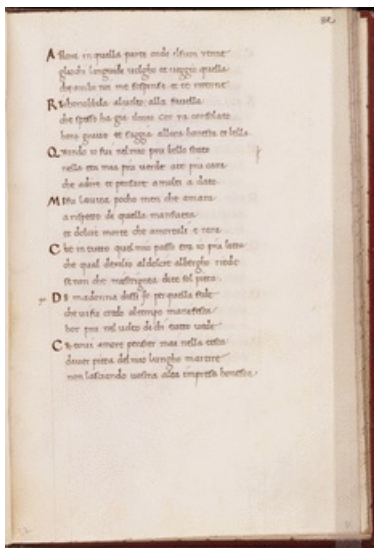 82
Allora in quella parte onde elsuon venne
gliocchi languide volgho et veggio quella
che ambo noi me sospinse et te ritenne
Richonobbila aluolto alla favella
che spesso ha gia cor
hora graue et saggia allora honesta et bella
Quando io fui nelmio piu bello stato
nella eta mia piu uerde ate piu cara
che adire et pensare amolti a dato
Mifu lauita pocho men che amara
arispetto de quella mansueta
et dolce morte che amortali e rara
Che in tutto quel mio passo era io piu lieta
che qual dexilio aldolce albergho riede
se non che mastrignea di te sol pieta
De madonna dissi per quella fede
che ui fu credo altempo manifesta
hor piu nel uolto di chi tutto uede
amore pensier mai nella testa
dauer pieta del mio lungho martire
non lasciando uostra alta impresa honesta